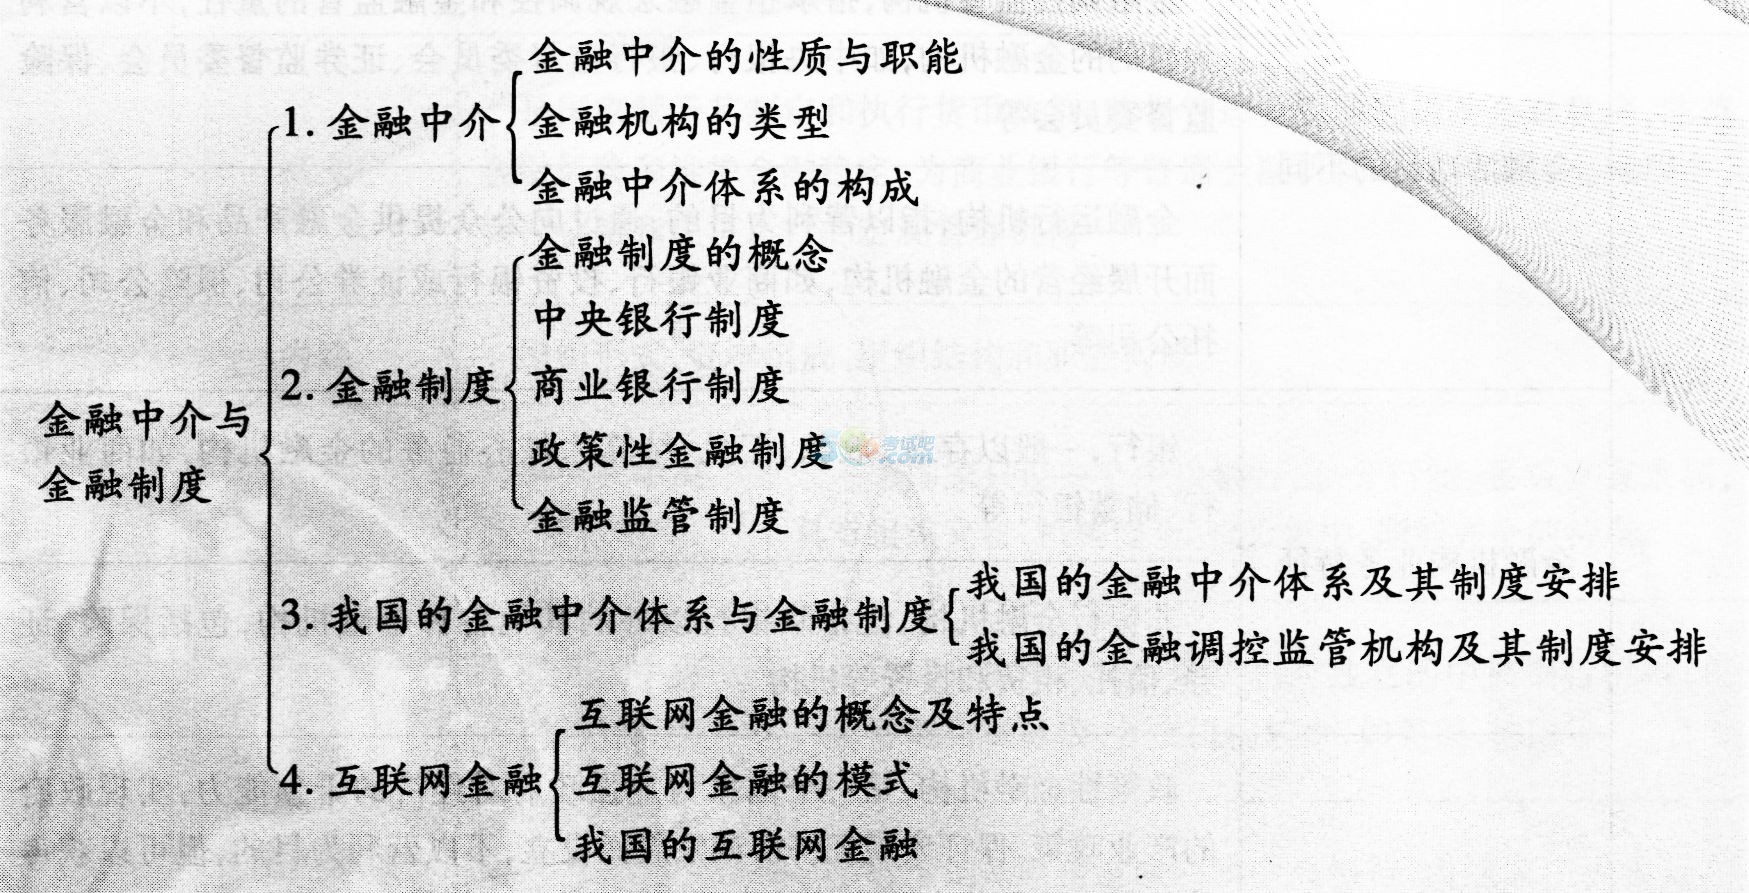 金融中介的性质与职能
1. 金融中介
金融机构的类型
金融中介体系的构成
金融制度的概念
中央银行制度
2. 金融制度
商业银行制度
金融中介与
金融制度
政策性金融制度
金融监管制度
3. 我国的金融中介体系与金融制度
我国的金融中介体系及其制度安排
我国的金融调控监管机构及其制度安排
互联网金融的概念及特点
4. 互联网金融
互联网金融的模式
我国的互联网金融